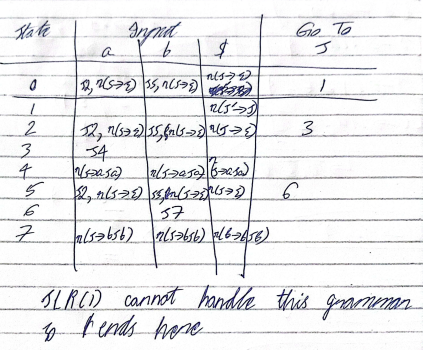 State Input Go To
a b $ S
0 S2, r(S→ε) S5, r(S→ε) r(S→ε) 1
1 r(S'→S)
2 S2, r(S→ε) S5, r(S→ε) r(S→ε) 3
3 S4
4 r(S→aSa) r(S→aSa) r(S→aSa)
5 S2, r(S→ε) S5, r(S→ε) r(S→ε) 6
6 S7
7 r(S→bSb) r(S→bSb) r(S→bSb)
SLR(1) cannot handle this grammar
ends here